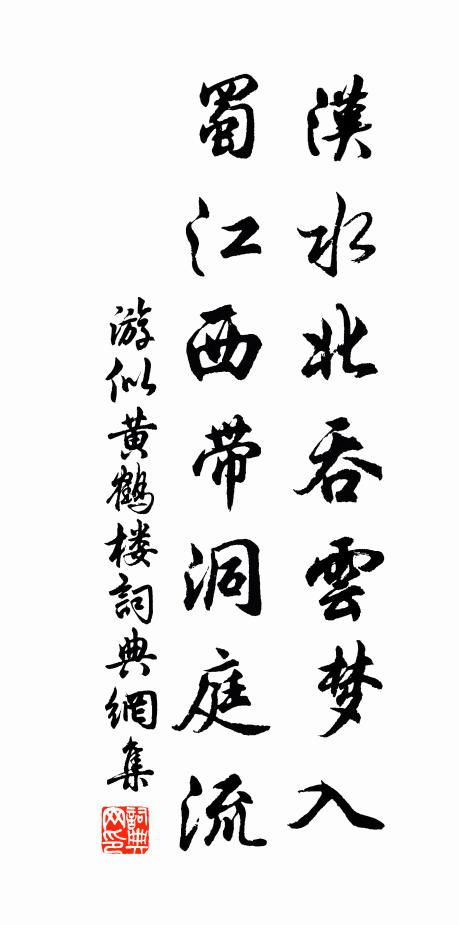 漢水北吞雲梦入
蜀江西帶洞庭流
游似黄鶴楼詞典網集
詞典网印